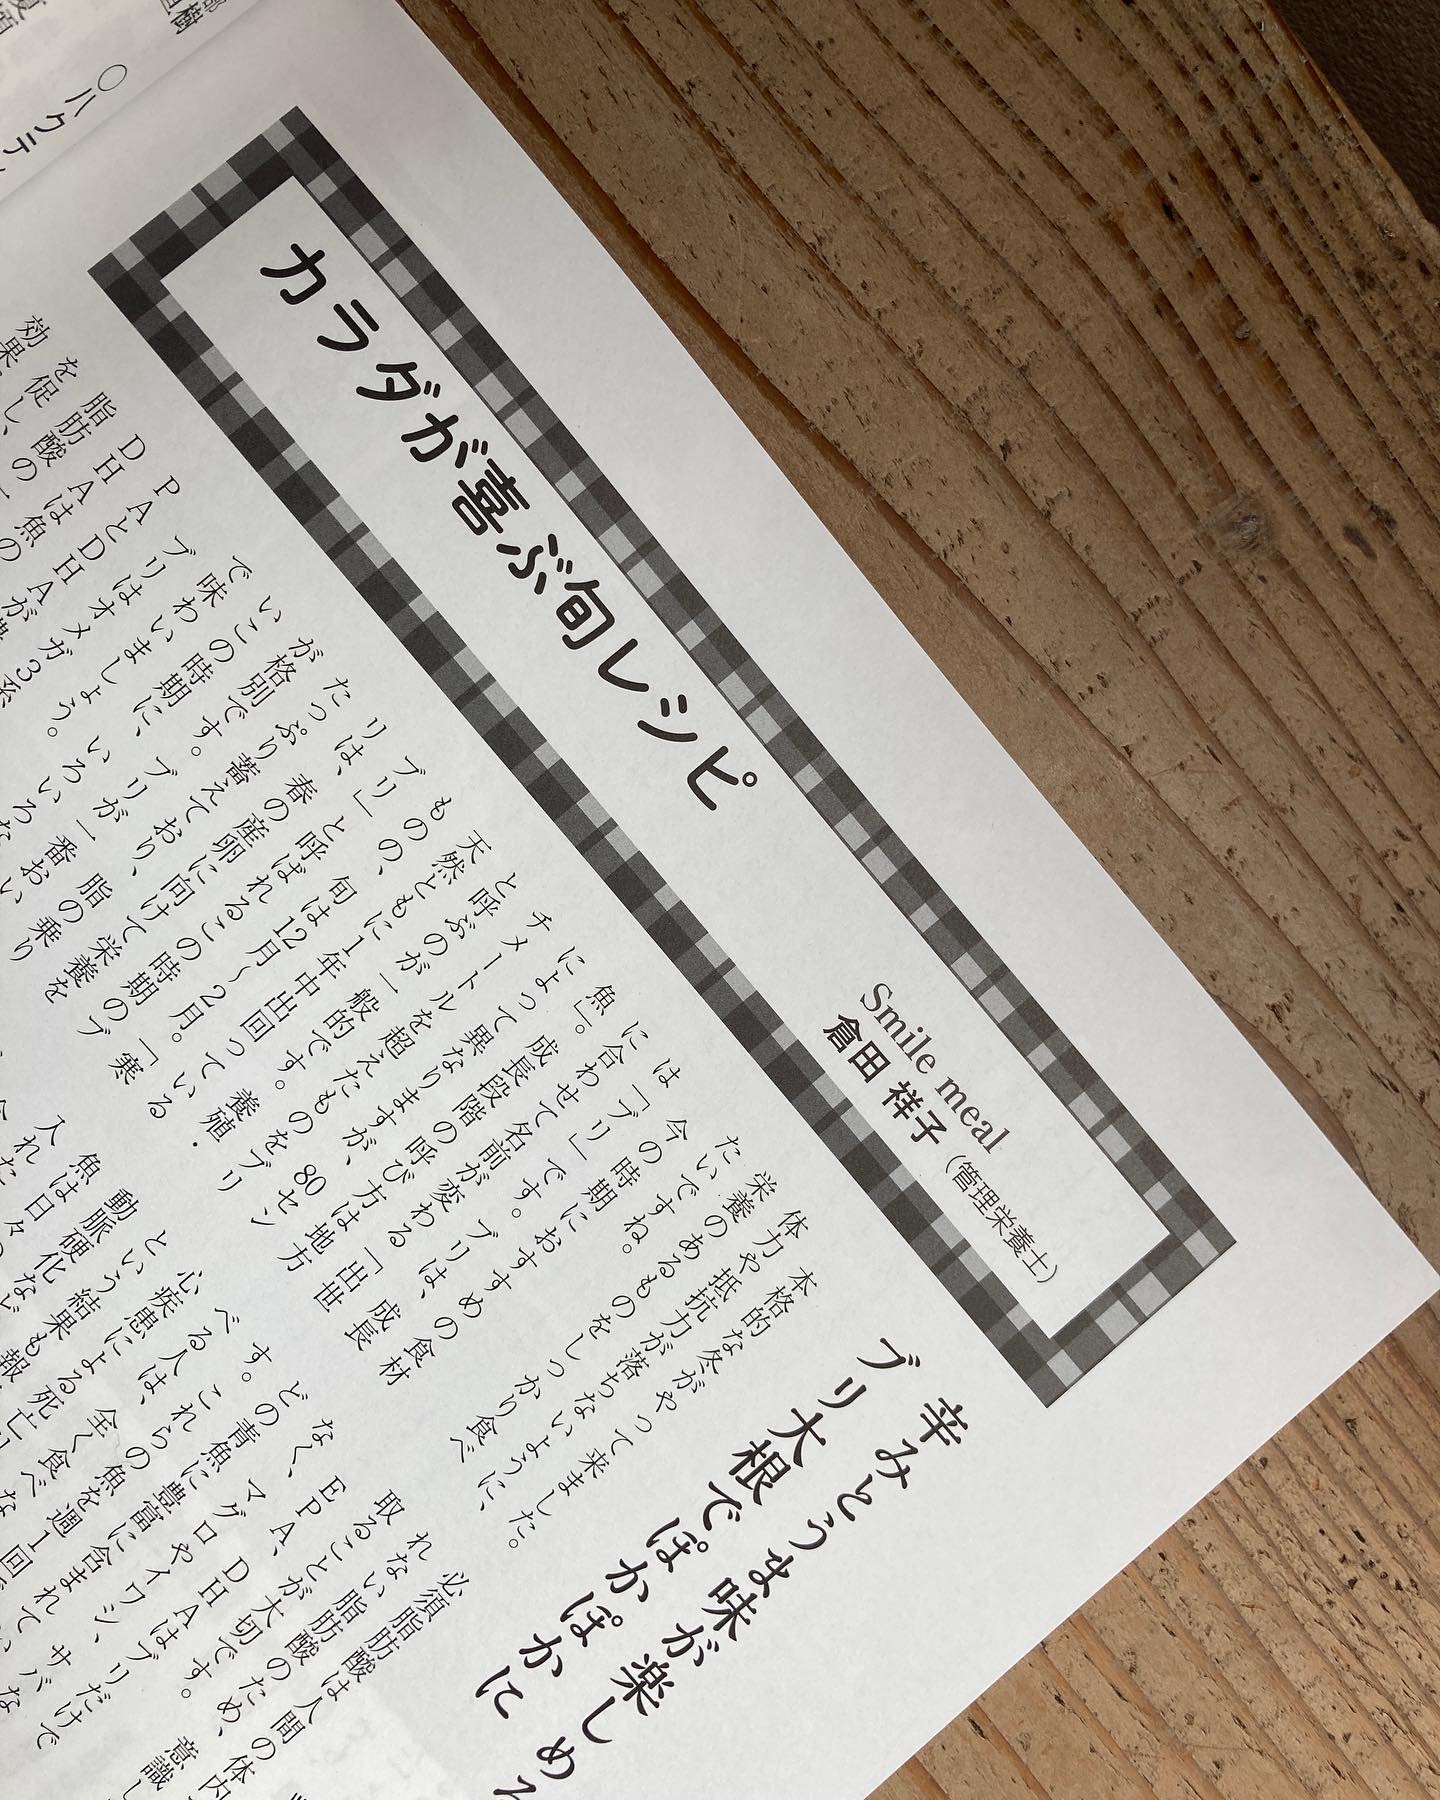 カラダが喜ぶ旬レシピ
Smile meal
倉田 祥子(管理栄養士)
辛みとうま味が楽しめる
ブリ大根でぽかぽかに
本格的な冬がやって来ました。
体力や抵抗力が落ちないように、
栄養のあるものをしっかり食べ
たいですね。
今の時期におすすめの食材
は「ブリ」です。ブリは、成長
に合わせて名前が変わる「出世
魚」。成長段階の呼び方は地方
によって異なりますが、80セン
チメートルを超えたものをブリ
と呼ぶのが一般的です。養殖・
天然ともに1年中出回っている
ものの、旬は12月~2月。「寒
ブリ」と呼ばれるこの時期のブ
リは、春の産卵に向けて栄養を
たっぷり蓄えており、脂の乗り
が格別です。ブリが一番おい
いこの時期に、いろいろな
で味わいましょう。
ブリはオメガ3系
PAとDHAが
DHAは魚の
脂肪酸の一
を促し、
効果
必須脂肪酸は人間の体内
れない脂肪酸のため、
取ることが大切です。意識し
EPA、DHAはブリだけで
なく、マグロやイワシ、サバな
どの青魚に豊富に含まれてい
す。これらの魚を週1回
べる人は、全く食べな
心疾患による死亡
という結果も報
動脈硬化など
魚は日々の
入れた
○ハクテ